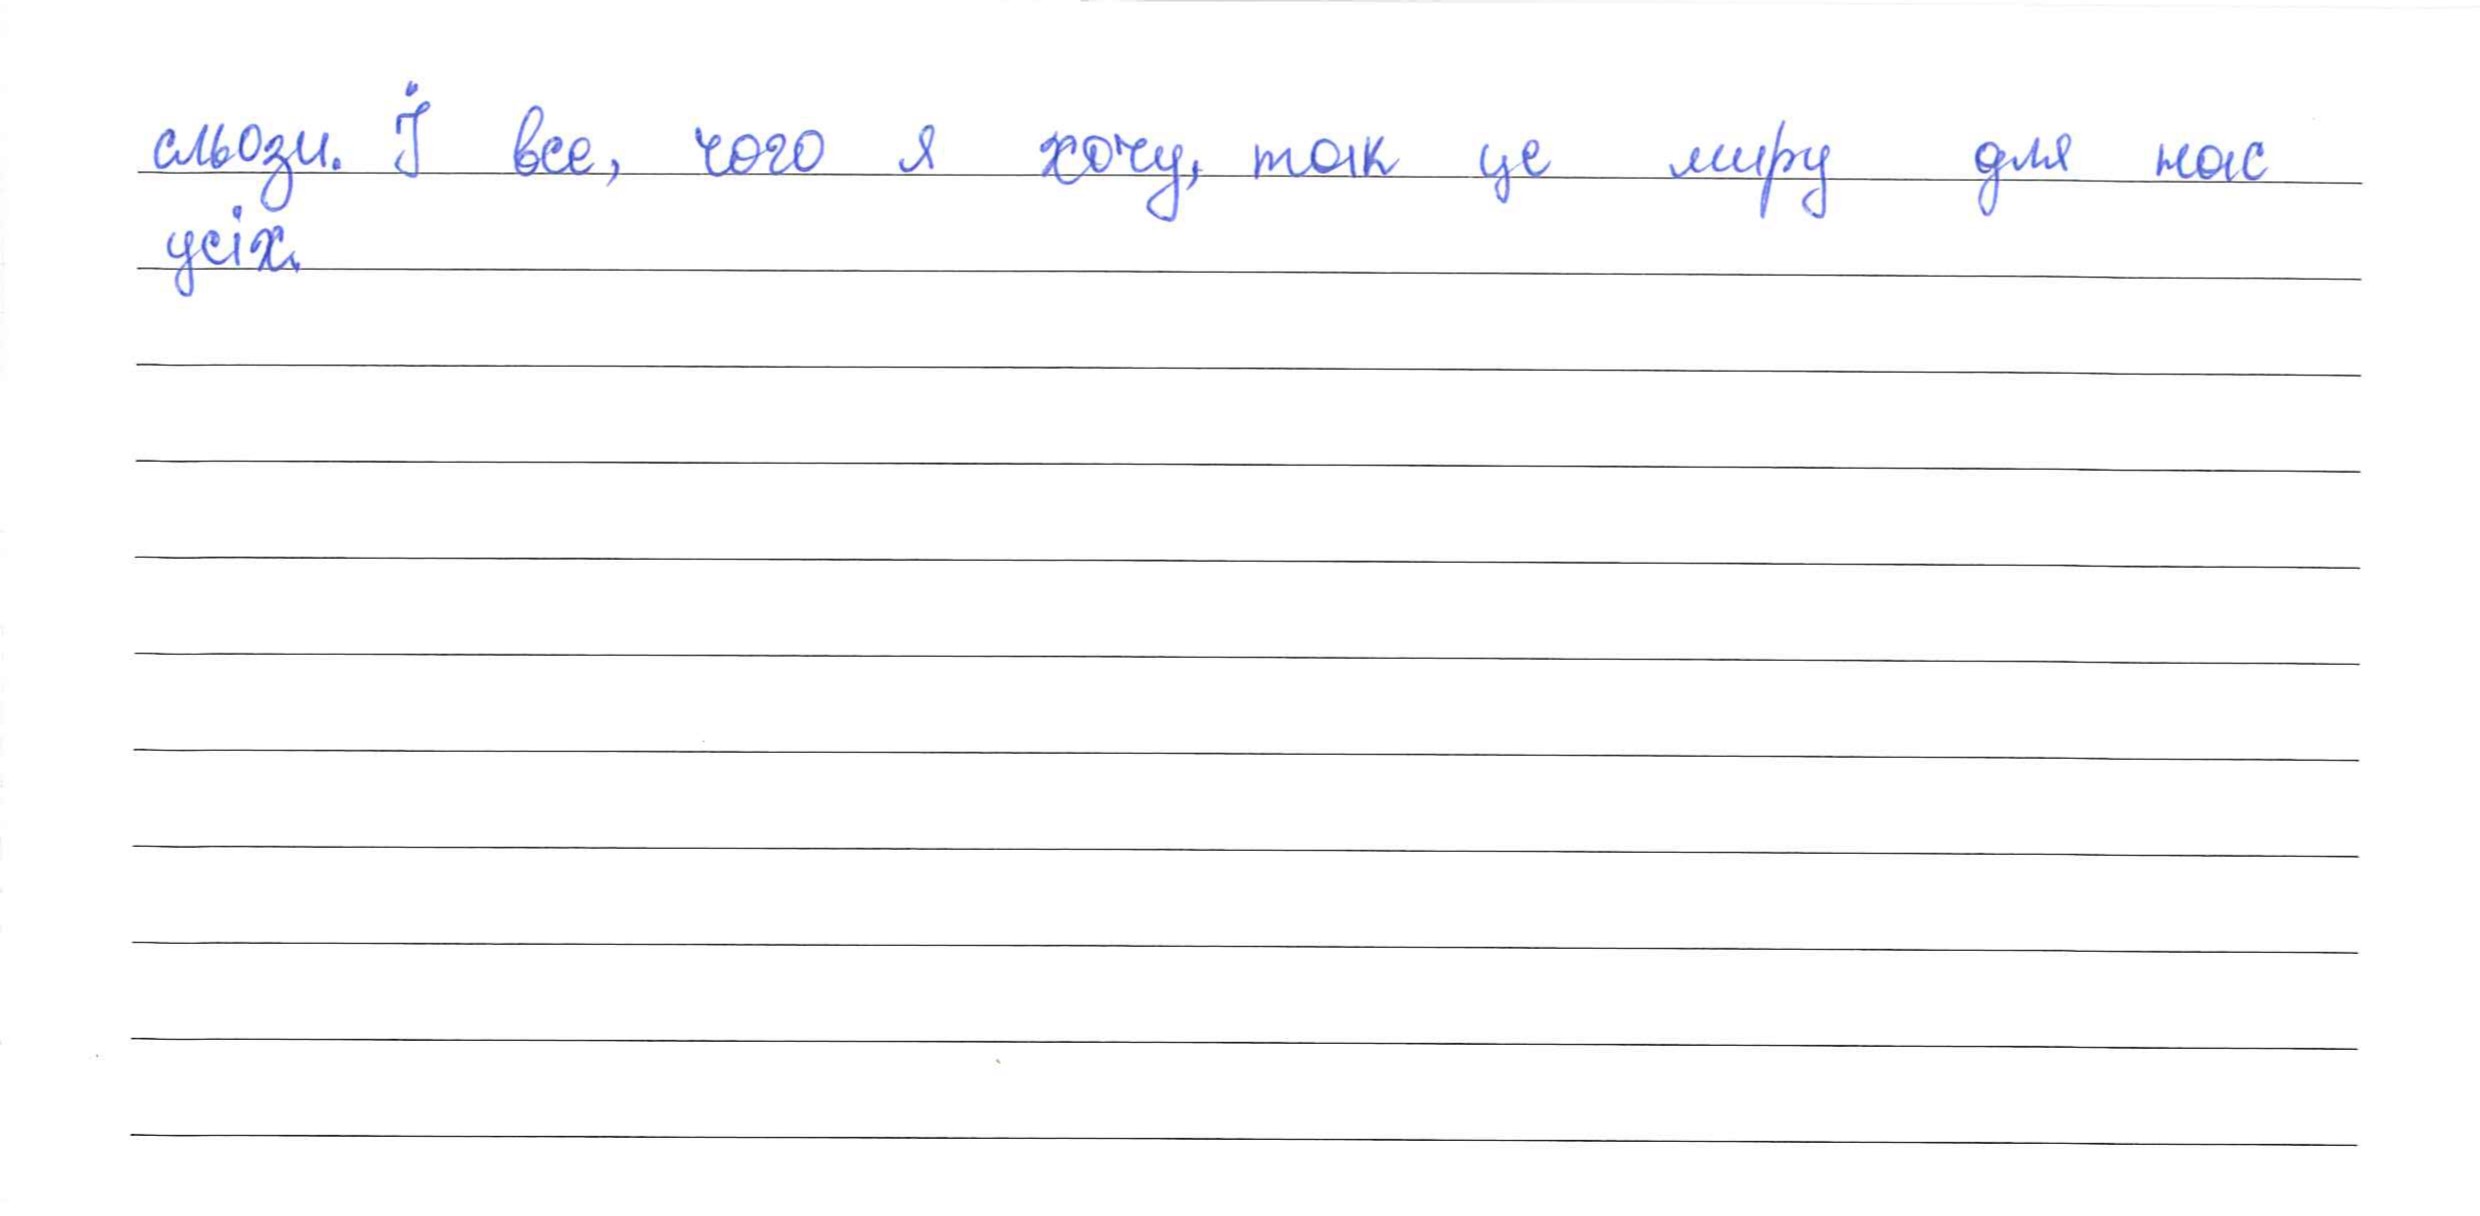 сльози. І все, чого я хочу, так це миру для нас
усіх.